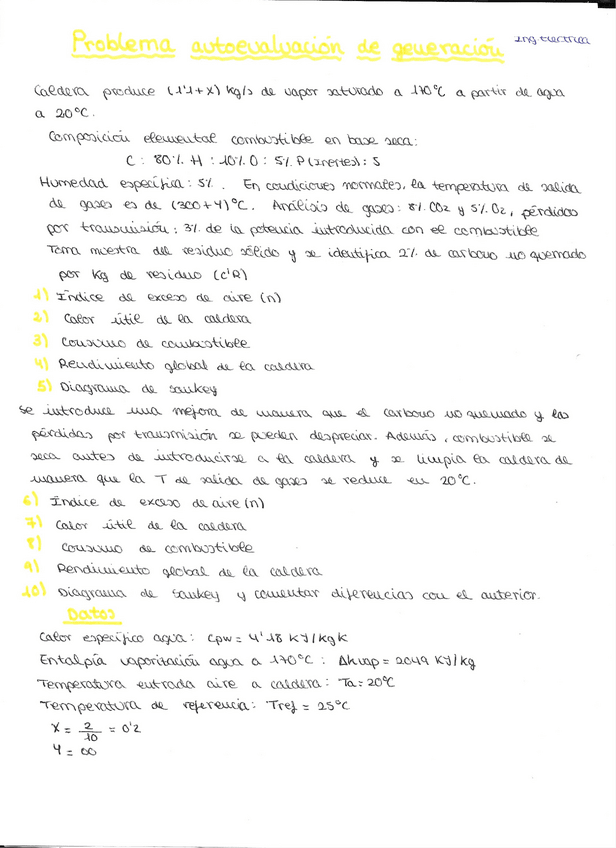 Problema autoevaluación de generación
Ing. Eléctrica
Caldera produce (1'1+x) kg/s de vapor saturado a 170°C a partir de agua
a 20°C.
Composición elemental combustible en base seca:
C : 80% H : 10% O : 5% P(inertes): 5
Humedad específica: 5%. En condiciones normales, la temperatura de salida
de gases es de (300+y)°C. Análisis de gases: 8% CO2 y 5% O2, pérdidas
por transmisión: 3% de la potencia introducida con el combustible
Toma muestra del residuo sólido y se identifica 2% de carbono no quemado
por kg de residuo (C'R)
1) Índice de exceso de aire (n)
2) Calor útil de la caldera
3) Consumo de combustible
4) Rendimiento global de la caldera
5) Diagrama de Sankey
Se introduce una mejora de manera que el carbono no quemado y las
pérdidas por transmisión se pueden despreciar. Además, combustible se
seca antes de introducirse a la caldera y se limpia la caldera de
manera que la T de salida de gases se reduce en 20°C.
6) Índice de exceso de aire (n)
7) Calor útil de la caldera
8) Consumo de combustible
9) Rendimiento global de la caldera
10) Diagrama de Sankey y comentar diferencias con el anterior.
Datos
Calor específico agua: Cpw = 4'18 KJ/kgK
Entalpía vaporización agua a 170°C : Δhvap = 2049 KJ/kg
Temperatura entrada aire a caldera: Ta = 20°C
Temperatura de referencia: Tref = 25°C
X = 2/10 = 0'2
Y = 00